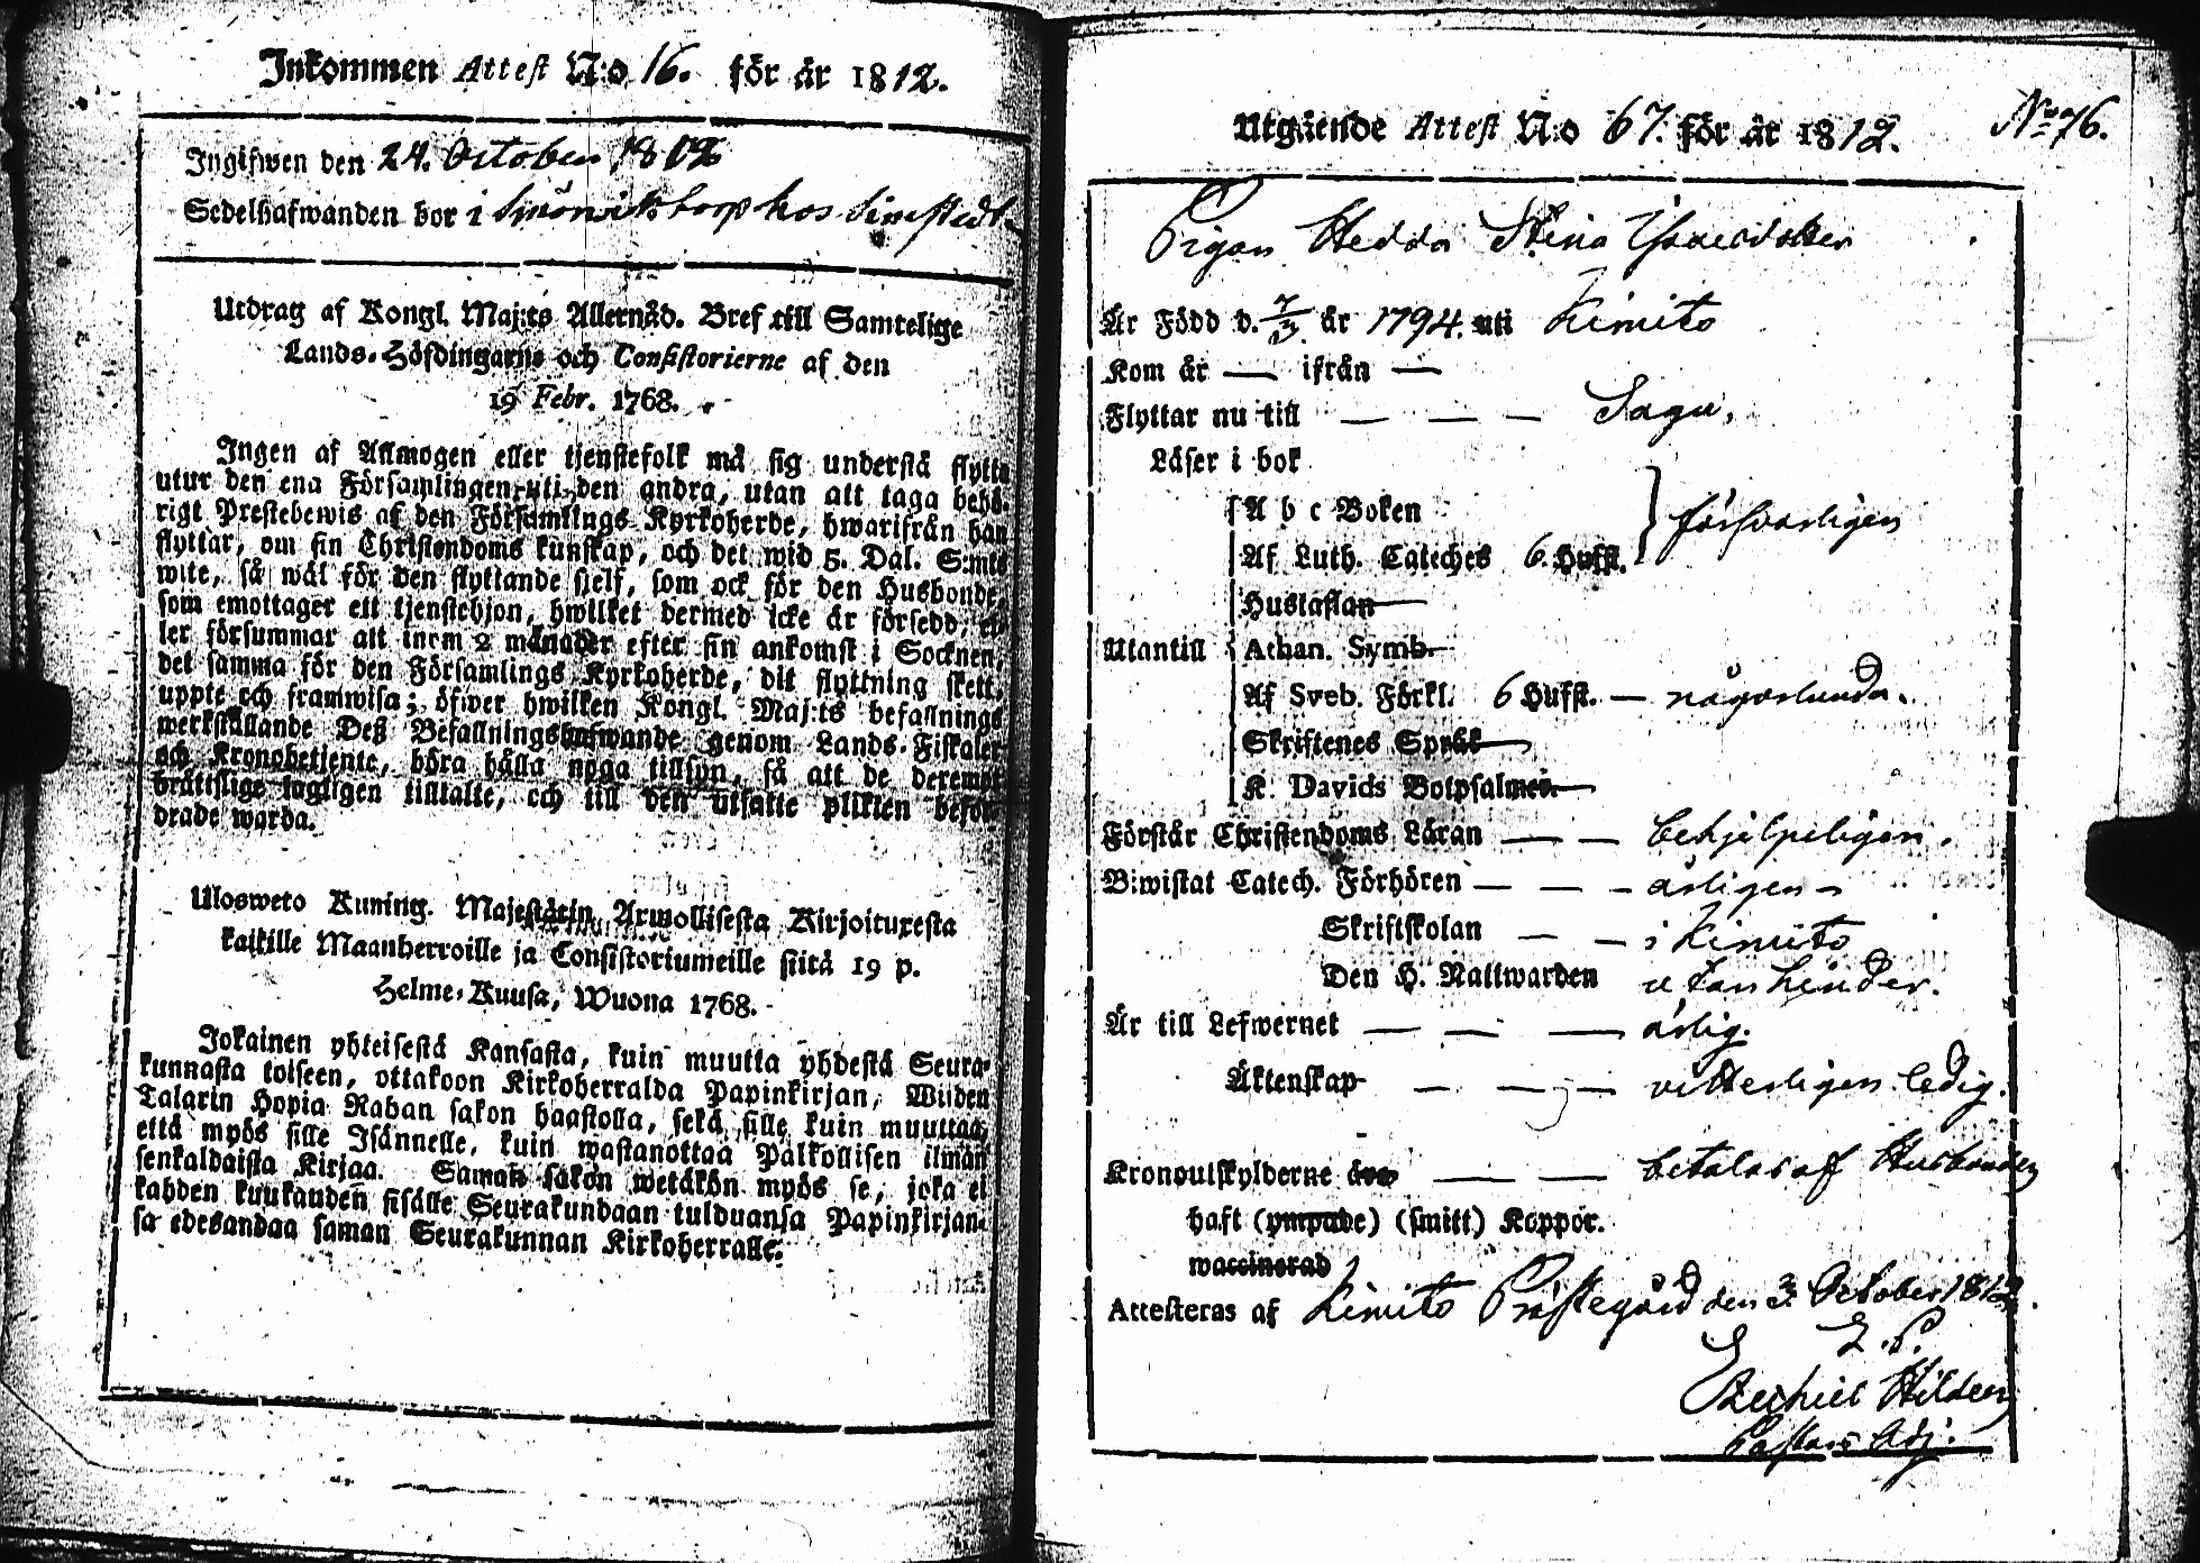 Inkommen Attest N:o 16. för år 1812.
Ingifwen den 24. October 1812
Sedelhafwanden bor i torp hos
Utdrag af Kongl. Maj:ts Allernåd. Bref till Samtelige
Lands-Höfdingarne och Consistorierne af den
19 Febr. 1768.
Ingen af Allmogen eller tjenstefolk må sig understå flytta
utur den ena Församlingen uti den andra, utan att taga behö-
rigt Prestebewis af den Församlings Kyrkoherde, hwarifrån han
flyttar, om sin Christendoms kunskap, och det wid 5. Dal. S:mts
wite, så wäl för den flyttande sjelf, som ock för den Husbonde,
som emottager ett tjenstehjon, hwilket dermed icke är försedd, el-
ler försummar att inom 2 månader efter sin ankomst i Socknen,
det samma för den Församlings Kyrkoherde, dit flyttning skett,
uppte och framwisa; öfwer hwilken Kongl. Maj:ts befallnings
werkställande Deß Befallningshafwande genom Lands-Fiskaler
och Kronobetjente, böra hålla noga tillsyn, så att de deremot
bråttslige lagligen tilltalte, och till den utsatte plikten befor-
drade warda.
Ulosweto Kuning. Majestätin Armollisesta Kirjoituxesta
kaikille Maanherroille ja Consistoriumeille siitä 19 p.
Helme-Kuusa, Wuona 1768.
Jokainen yhteisestä Kansasta, kuin muutta yhdestä Seura-
kunnasta toiseen, ottakoon Kirkoherralda Papinkirjan, Wiiden
Talarin Hopia Rahan sakon haastolla, sekä sille kuin muuttaa,
että myös sille Isännelle, kuin wastanottaa Palkollisen ilman
senkaldaista Kirjaa. Saman sakon wetäkön myös se, joka ei
kahden kuukauden sisälle Seurakundaan tulduansa Papinkirjan-
sa edesandaa saman Seurakunnan Kirkoherralle.
Utgående Attest N:o 67. för år 1812.
No 76.
Pigan Hedda Stina
Är Född d. 7/3 år 1794. uti Kimito
Kom år — ifrån —
Flyttar nu till — — — Sagu,
Läser i bok
A b c Boken
försvarligen
Af Luth. Cateches 6. Hufst.
Hustaflan
Utantill Athan. Symb.
Af Sveb. Förkl. 6 Hufst. — någorlunda.
Skriftenes Språk
K. Davids Botpsalmer
Förstår Christendoms Läran — — behjelpeligen.
Biwistat Catech. Förhören — — — årligen
Skriftskolan — — i Kimito
Den H. Nattwarden utan hinder.
Är till Lefwernet — — — ärlig.
Äktenskap — — — vitterligen ledig.
Kronoutskylderne äro — — betalas af Husbonden
haft (ympade) (smitt) Koppor.
waccinerad
Attesteras af Kimito Prästegård den 3 October 1812.
Ezechiel Hilden
Pastors Adj.